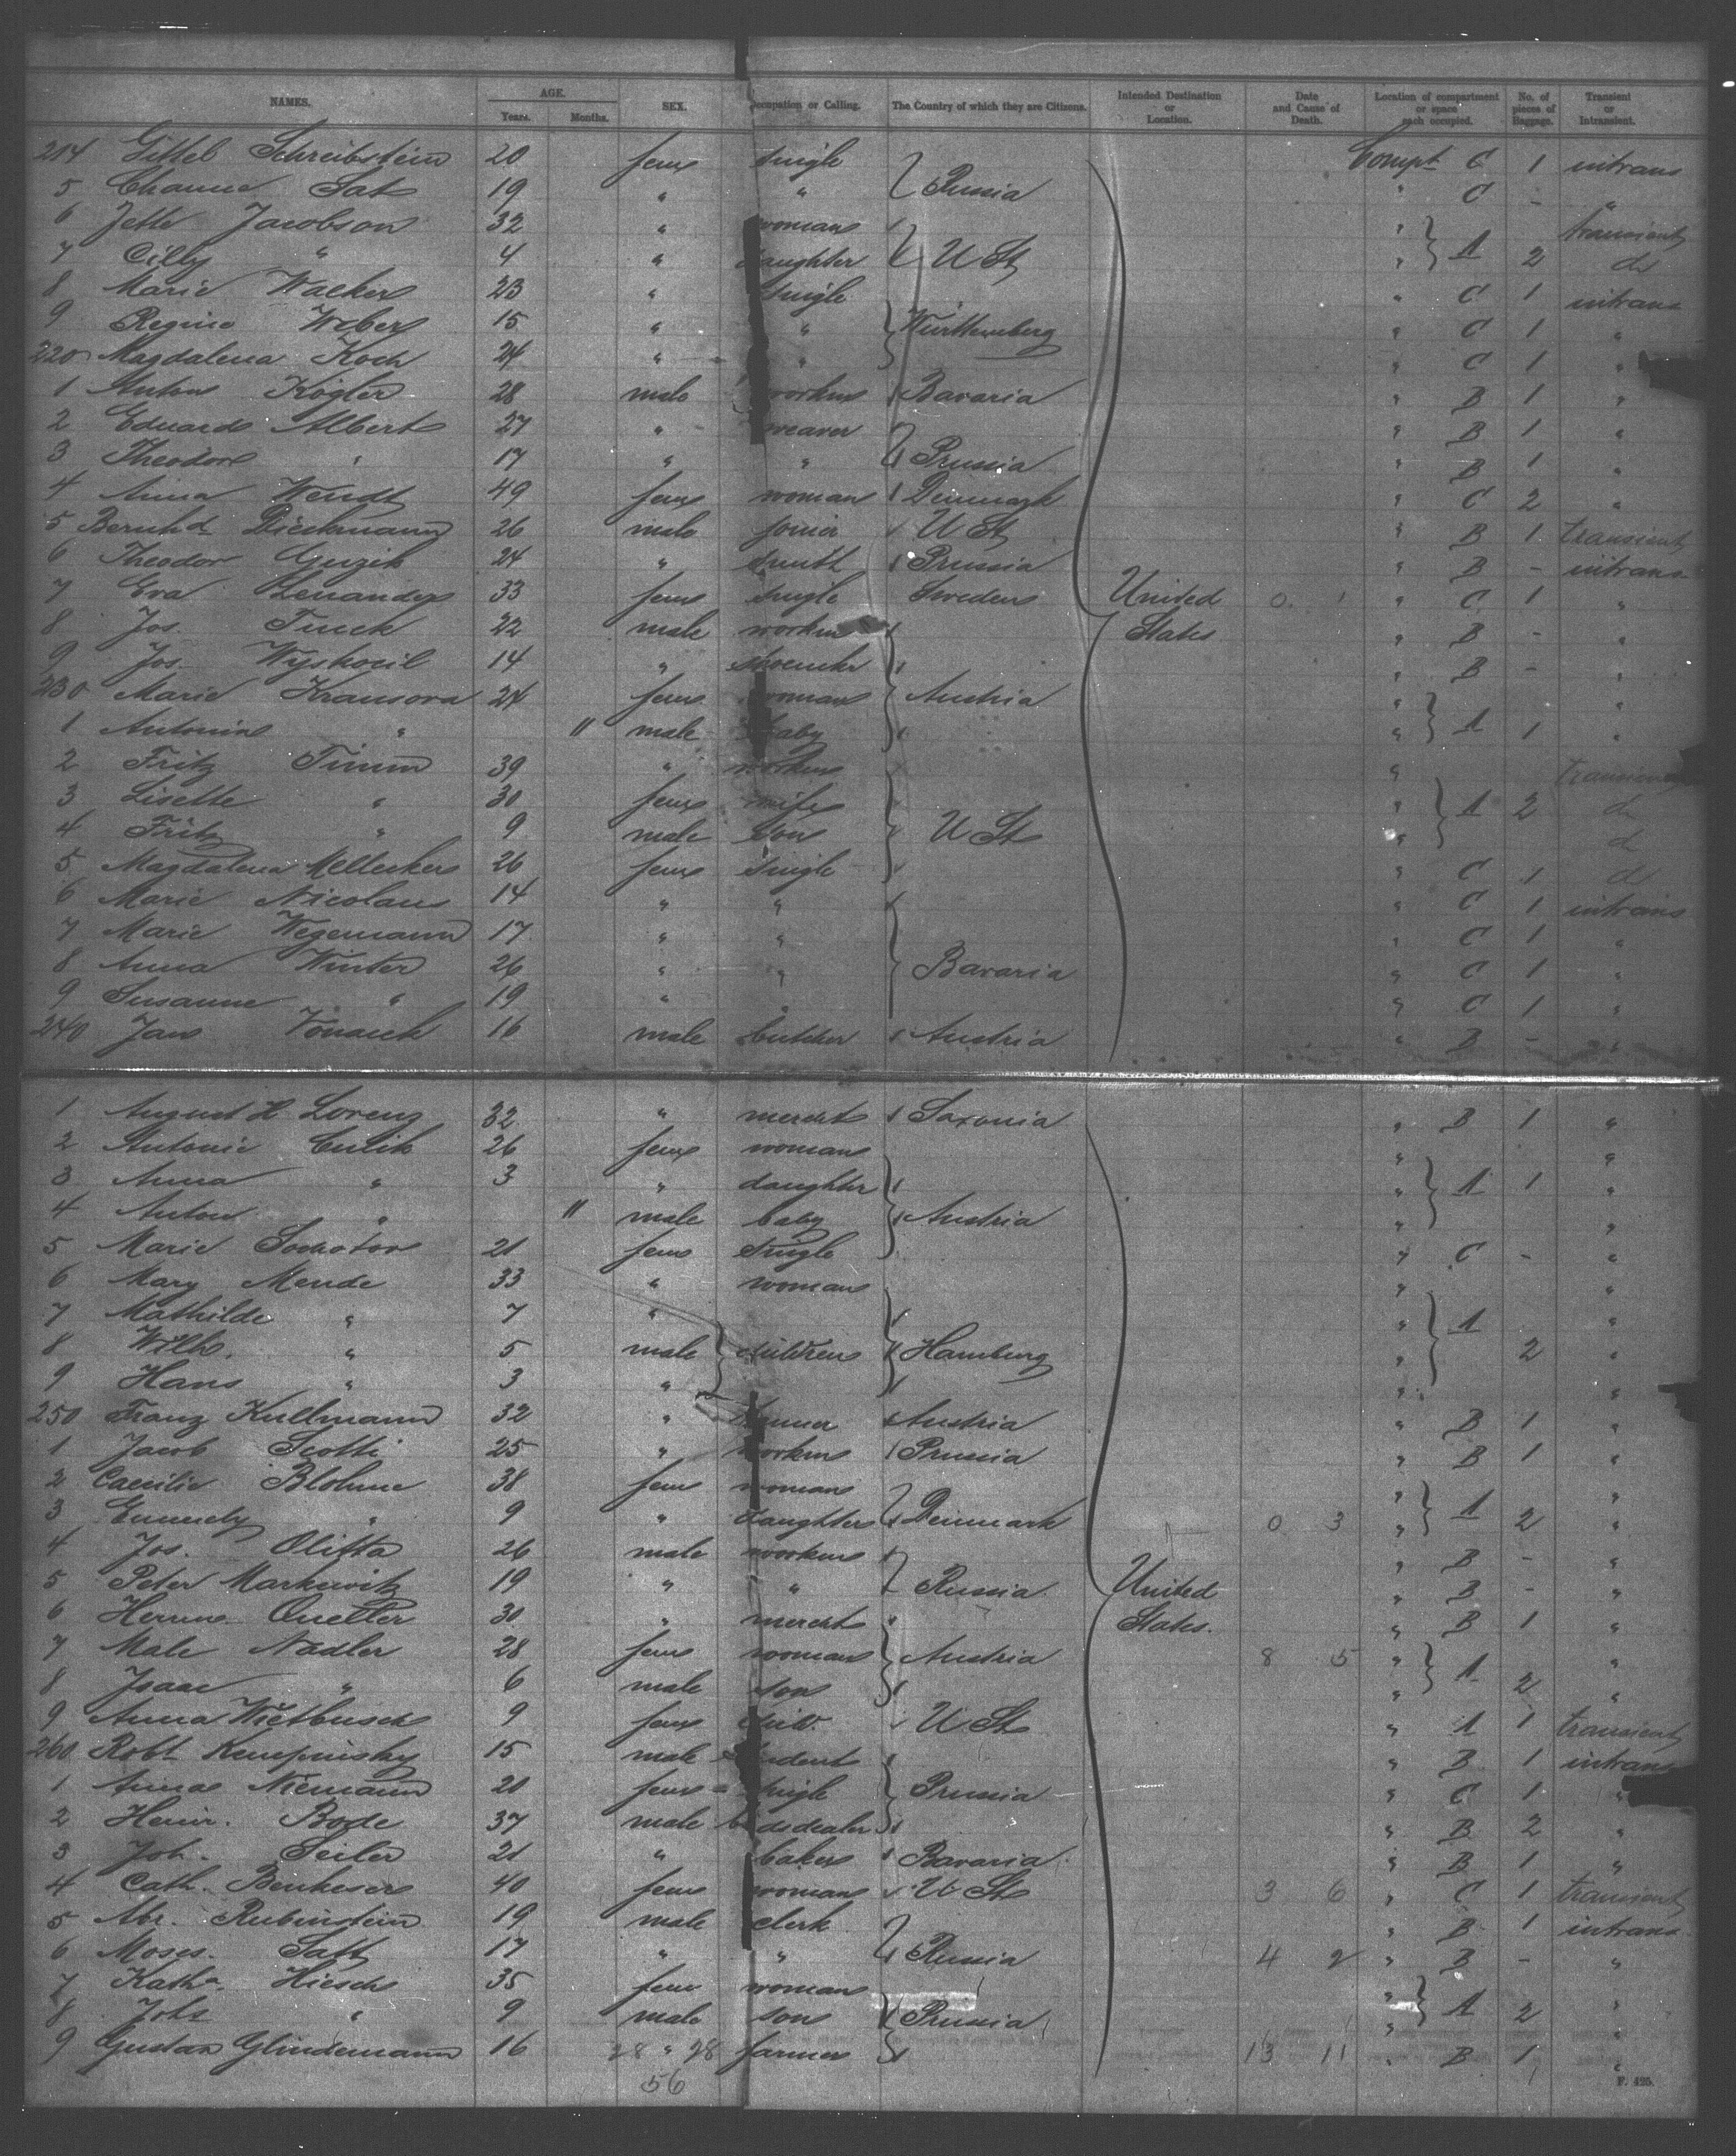 NAMES. AGE. Years. Months. SEX. Occupation or Calling. The Country of which they are Citizens. Intended Destination or Location. Date and Cause of Death. Location of compartment or space each occupied. No. of pieces of Baggage. Transient or Intransient.
214 Gittel Schreibstein 20 fem single Compt C 1 intrans
5 Channe Sat 19 " " Russia " C - "
6 Jette Jacobson 32 " woman " transient
7 Cilly " 4 " daughter U St " A 2 do
8 Marie Walker 23 " single " C 1 intrans
9 Regine Weber 15 " " Württemberg " C 1 "
220 Magdalena Koch 24 " " " C 1 "
1 Anton Kögler 28 male workm Bavaria " B 1 "
2 Eduard Albert 27 " weaver " B 1 "
3 Theodor " 17 " " Prussia " B 1 "
4 Anna Wendt 49 fem woman Denmark " C 2 "
5 Bernhd Dieckmann 26 male joiner U St " B 1 transient
6 Theodor Guzik 24 " smith Prussia " B - intrans
7 Eva Lenander 33 fem single Sweden United 0 1 " C 1 "
8 Jos. Turek 22 male workm States " B - "
9 Jos. Wyskocil 14 " shoemkr " B - "
230 Marie Kransova 24 fem woman Austria " "
1 Antonin " 11 male baby " A 1 "
2 Fritz Timm 39 " workm " transient
3 Lisette " 30 fem wife " A 2 do
4 Fritz " 9 male son U St " do
5 Magdalena Mellecker 26 fem single " C 1 do
6 Marie Nicolaus 14 " " " C 1 intrans
7 Marie Wegemann 17 " " " C 1 "
8 Anna Winter 26 " " Bavaria " C 1 "
9 Susanne " 19 " " " C 1 "
240 Jan Vonasek 16 male butcher Austria " B - "
1 August H. Lorenz 32 " mercht Saxonia " B 1 "
2 Antonie Culik 26 fem woman " "
3 Anna " 3 " daughter " A 1 "
4 Anton " 11 male baby Austria " "
5 Marie Sochotor 21 fem single " C - "
6 Mary Mende 33 " woman " "
7 Mathilde " 7 " " A "
8 Wilh. " 5 male children Hamburg " 2 "
9 Hans " 3 " " "
250 Franz Kullmann 32 " tanner Austria " B 1 "
1 Jacob Scotti 25 " workm Prussia " B 1 "
2 Caecilie Blohme 38 fem woman " "
3 Emmely " 9 " daughter Denmark 0 3 " A 2 "
4 Jos. Olifta 26 male workm " B - "
5 Peter Markewitz 19 " " Russia United " B - "
6 Herm. Queller 30 " mercht States. " B 1 "
7 Male Nadler 28 fem woman Austria 8 5 " A "
8 Isaac " 6 male son " 2 "
9 Anna Wietbusch 9 fem child U St " A 1 transient
260 Robt Kempinsky 15 male student " B 1 intrans
1 Anna Niemann 20 fem single Prussia " C 1 "
2 Heinr. Bode 37 male birdsdealer " B 2 "
3 Joh. Seiler 21 " baker Bavaria " B 1 "
4 Cath. Benheser 40 fem woman U St 3 6 " C 1 transient
5 Abr. Rubinstein 19 male clerk " B 1 intrans
6 Moses Satt 17 " " Russia 4 2 " B - "
7 Katha Hiesch 35 fem woman " "
8 Johs " 9 male son Prussia " A 2 "
9 Gustav Glindemann 16 28 " 28 farmer 13 11 " B 1 "
56
F. 425.